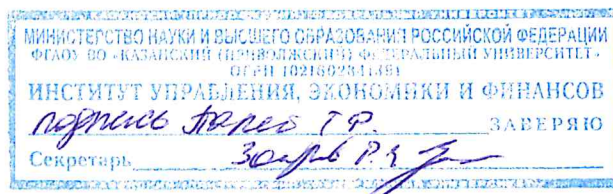 МИНИСТЕРСТВО НАУКИ И ВЫСШЕГО ОБРАЗОВАНИЯ РОССИЙСКОЙ ФЕДЕРАЦИИ
ФГАОУ ВО «КАЗАНСКИЙ (ПРИВОЛЖСКИЙ) ФЕДЕРАЛЬНЫЙ УНИВЕРСИТЕТ»
ОГРН
ИНСТИТУТ УПРАВЛЕНИЯ, ЭКОНОМИКИ И ФИНАНСОВ
подпись ЗАВЕРЯЮ
Секретарь